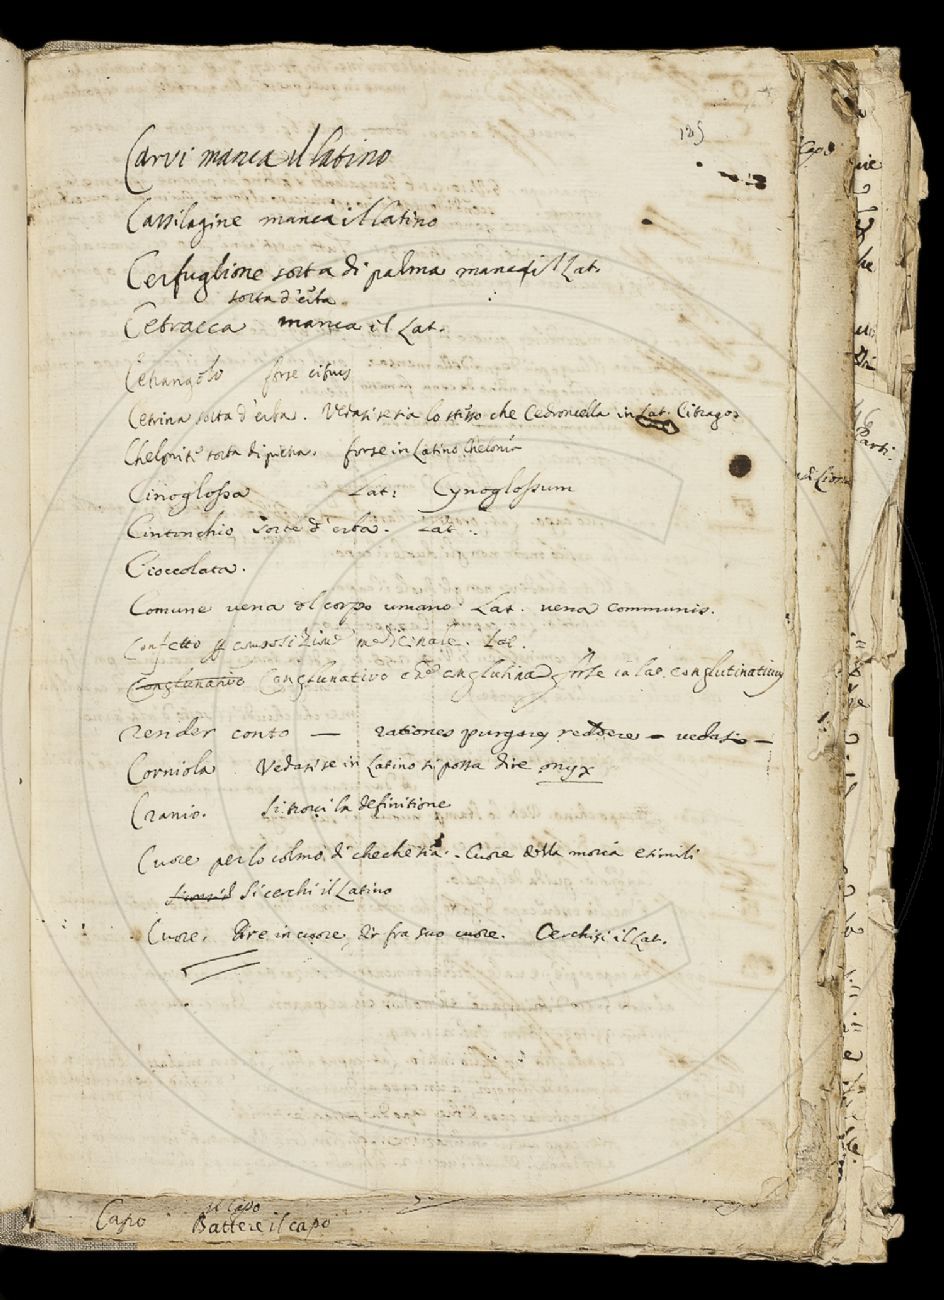 185
Carvi manca il latino
Cassilagine manca il latino
Cerfuglione sorta di palma manca il Lat.
sorta d'erba
Cetracca manca il Lat.
Cetrangolo forse citrus
Cetrina sorta d'erba. Vedasi se sia lo stesso che Cedronella in Lat. Citrago
Chelonite sorta di pietra. forse in Latino Chelonia
Cinoglossa Lat: Cynoglossum
Cintonchio sorte d'erba. Lat.
Cioccolata.
Comune vena del corpo umano. Lat. vena communis.
Confetto composizione medicinale. Lat.
Conglunativo Conglunativo che conglutina forse in lat. conglutinativus
render conto — rationes purgare, reddere — vedasi —
Corniola Vedasi se in Latino si possa dire onyx
Cranio. Si trovi la definitione
Cuore per lo colmo di checchesia. Cuore della morìa e simili
Si cerchi il Latino
Cuore. Dire in cuore, dir fra suo cuore. Cerchisi il Lat.
il Capo
Capo Battere il capo